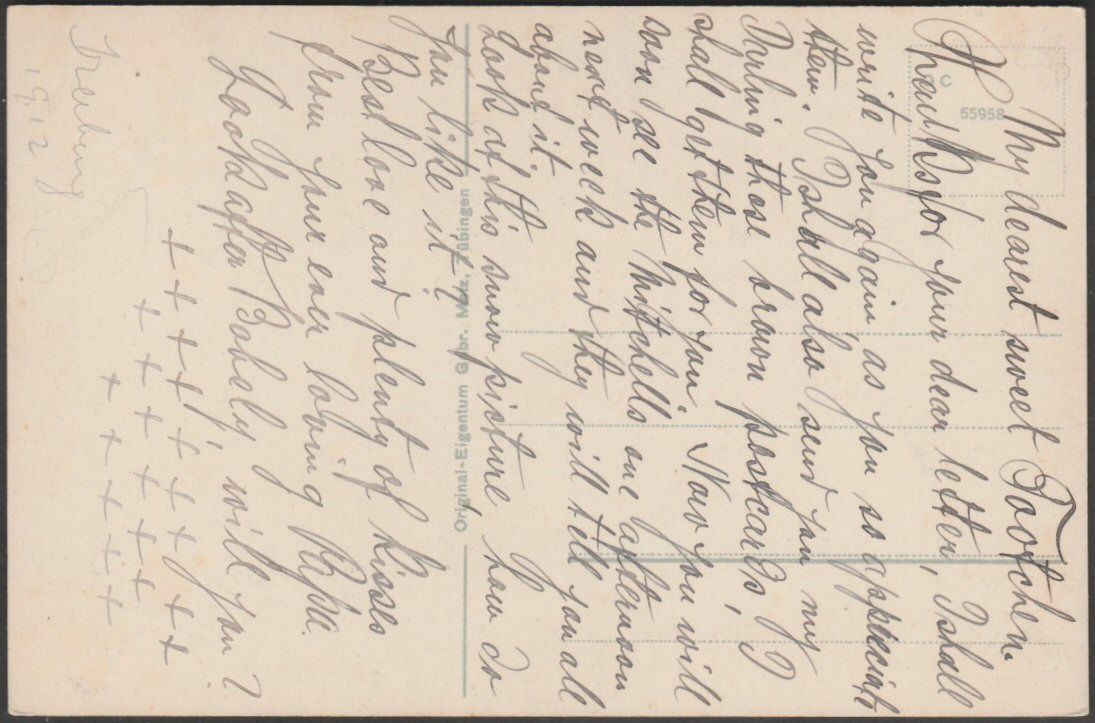 My dearest sweet Tootchen.
Thanks for your dear letter, I shall
write you again as you so appreciate
them. I shall also send you my
Darling those brown postcards, I
shall get them for you. Now you will
soon see the Mitchells one afternoon
next week and they will tell you all
about it.
Look at this snow picture, how do
you like it?
Best love and plenty of kisses
from your ever loving Pappa.
Look after Bobely, will you?
+ + + + + + + + + +
+ + + + + + +
+ + + + +
Freiburg
1912
G C
55958
Original-Eigentum Gebr. Metz, Tübingen